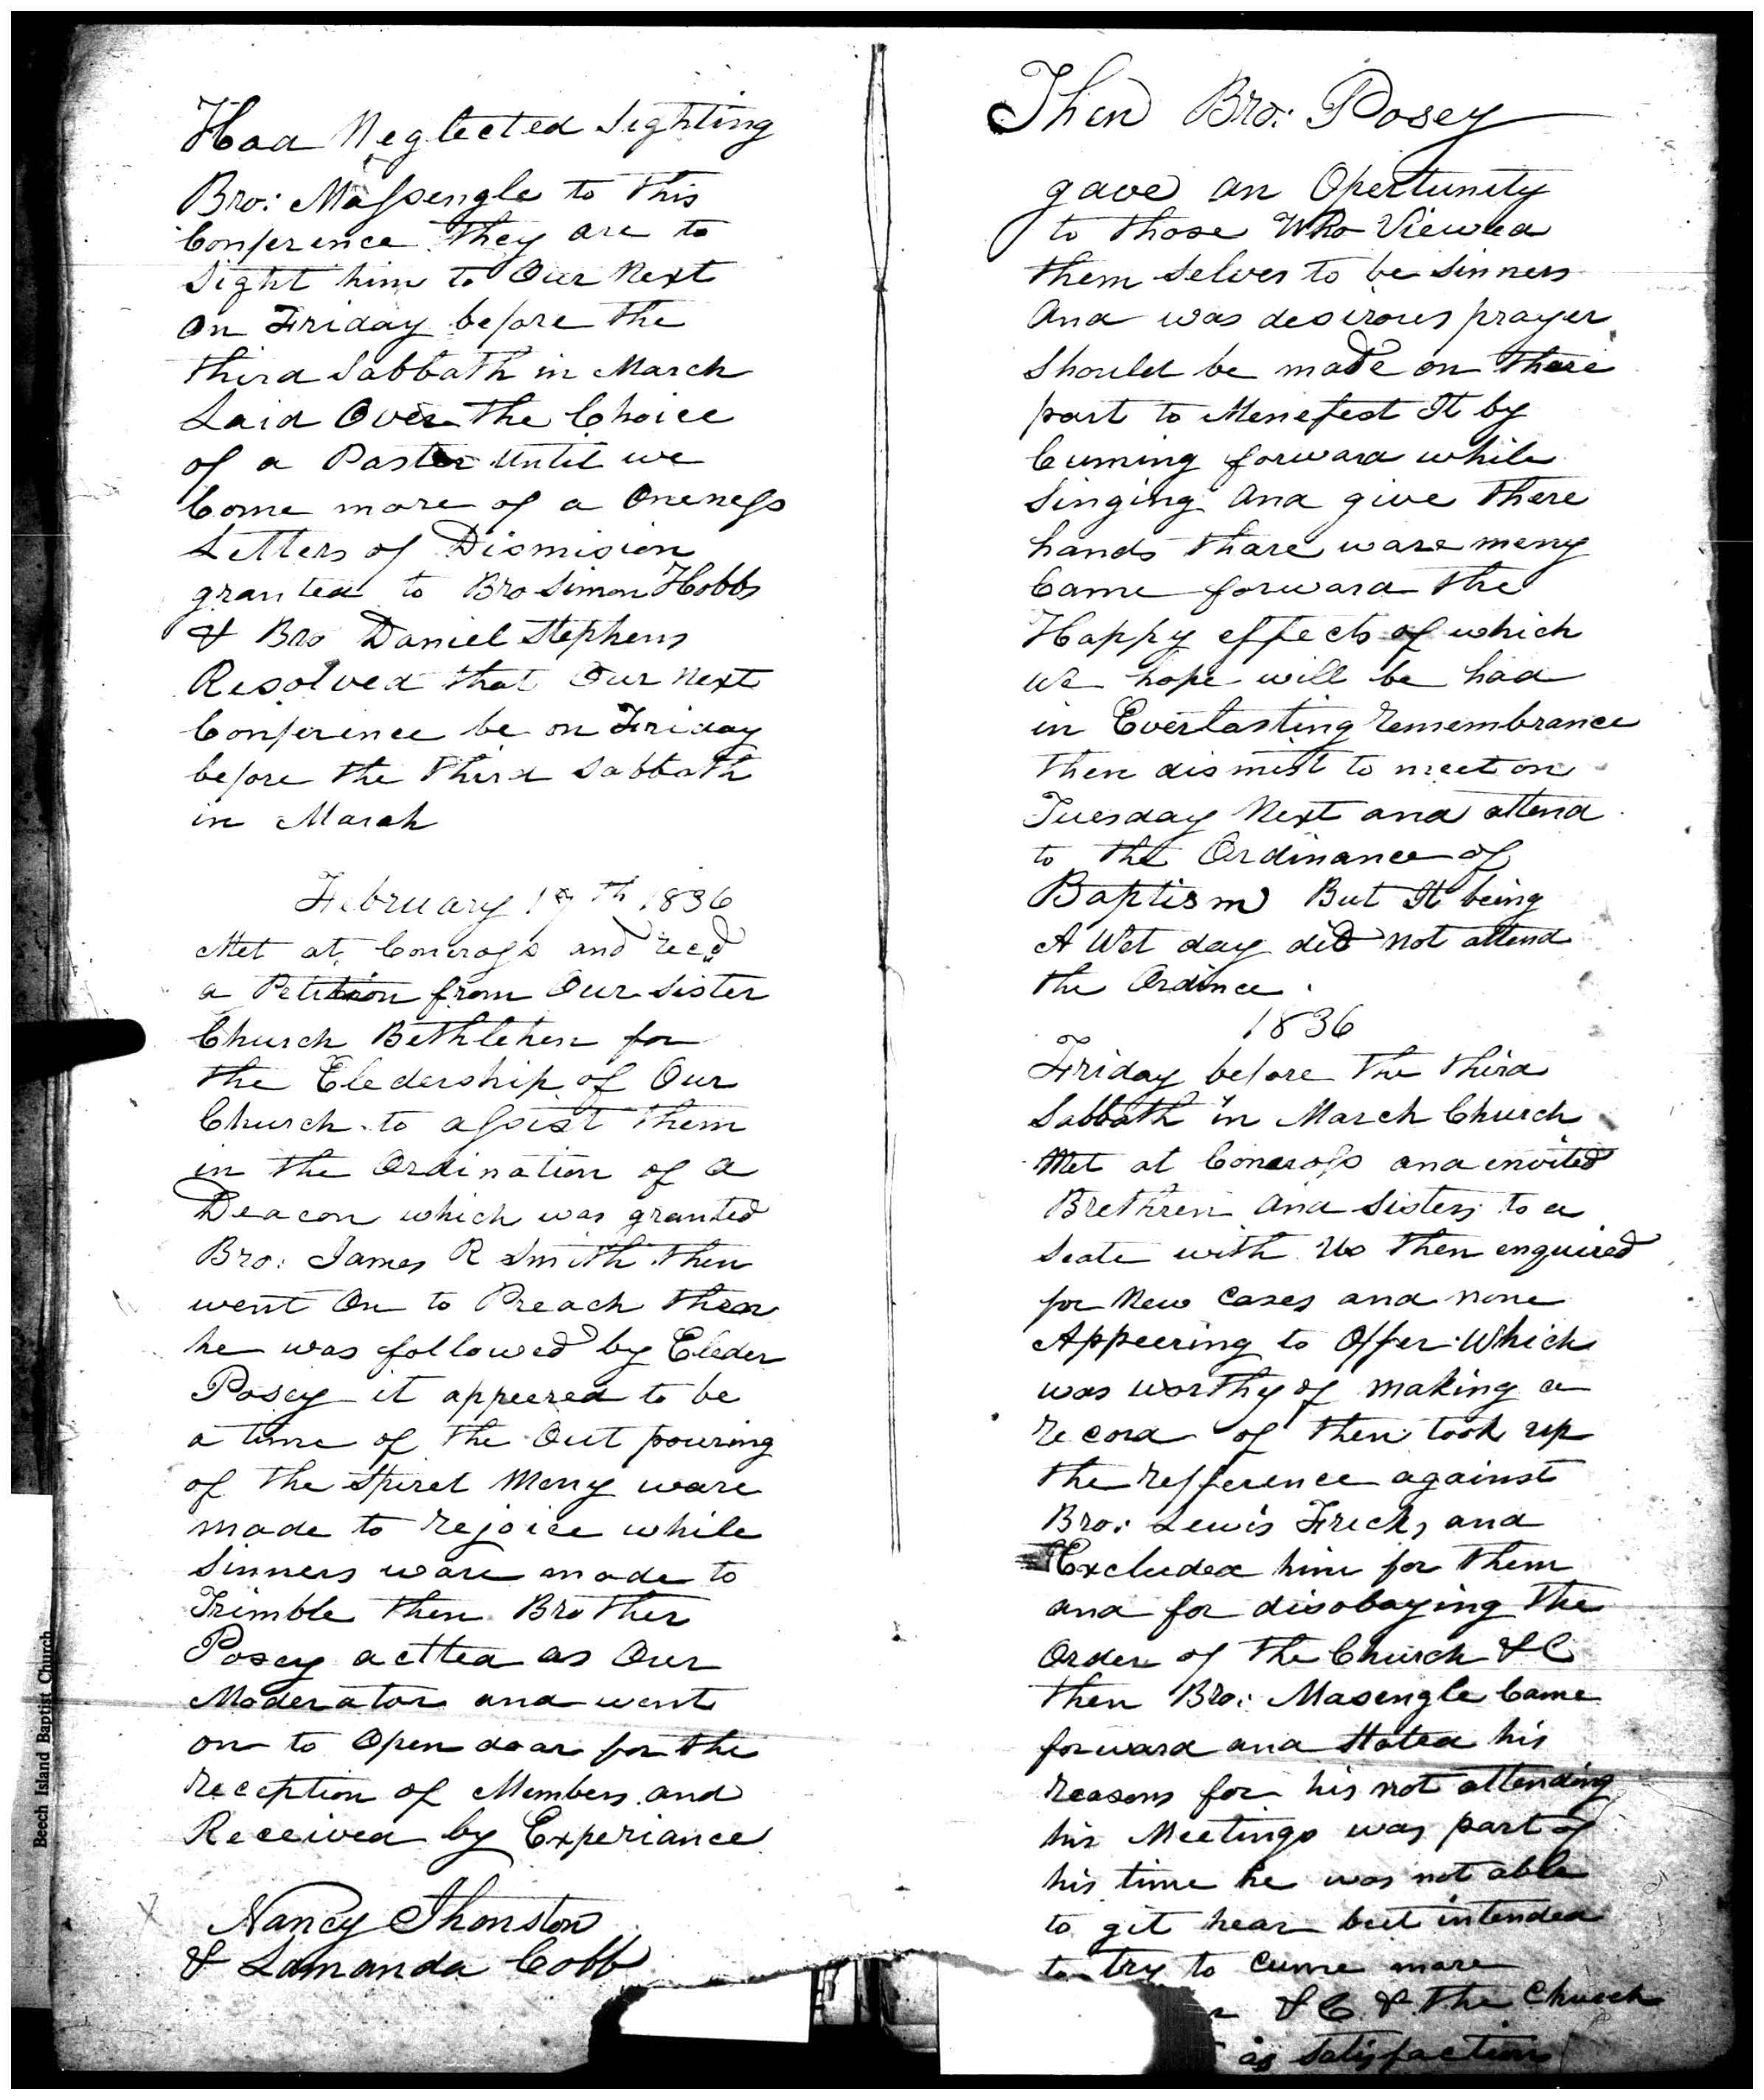 Had Neglected Sighting
Bro: Massengle to this
Conference they are to
Sight him to Our Next
On Friday before the
third Sabbath in March
Laid Over the Choice
of a Paster Until we
Come more of a Oneness
Letters of Dismision
granted to Bro Simon Hobbs
& Bro Daniel Stephens
Resolved that Our Next
Conference be on Friday
before the third Sabbath
in March
February 19th 1836
Met at Concross and Recd
a Petition from Our Sister
Church Bethlehem for
the Eledership of Our
Church to assist them
in the Ordination of a
Deacon which was granted
Bro: James R Smith then
went On to Preach then
he was followed by Eleder
Posey it appeered to be
a time of the Out pouring
of the Spiret Meny ware
made to rejoice while
Sinners ware made to
Trimble then Brother
Posey actted as Our
Moderator and went
on to Open doar for the
reception of Members and
Received by Experiance
Nancy Thonston
& Lamanda Cobb
Beech Island Baptist Church
Then Bro: Posey
gave an Opertunity
to those Who Viewed
them Selves to be Sinners
And was desirous prayer
Should be made on thare
part to Menefest It by
Cuming forward while
Singing And give there
hands thare ware meny
Came forward the
Happy effects of which
we hope will be had
in Everlasting remembrance
then dismist to meet on
Tuesday Next and attend
to the Ordinance of
Baptism But It being
A Wet day did not attend
the Ordince.
1836
Friday before the third
Sabbath in March Church
Met at Concross and envited
Brethren And Sisters to a
Seate with Us then enquired
for New Cases and none
Appeering to Offer Which
was worthy of making a
record of then took up
the refference against
Bro: Lewis Frick, and
Excluded him for them
and for disobaying the
Order of the Church &C
then Bro: Masengle Came
forward and Stated his
reasons for his not attending
his Meetings was part of
his time he was not able
to git hear but intended
to try to cume more
&C & the Church
as Satisfaction